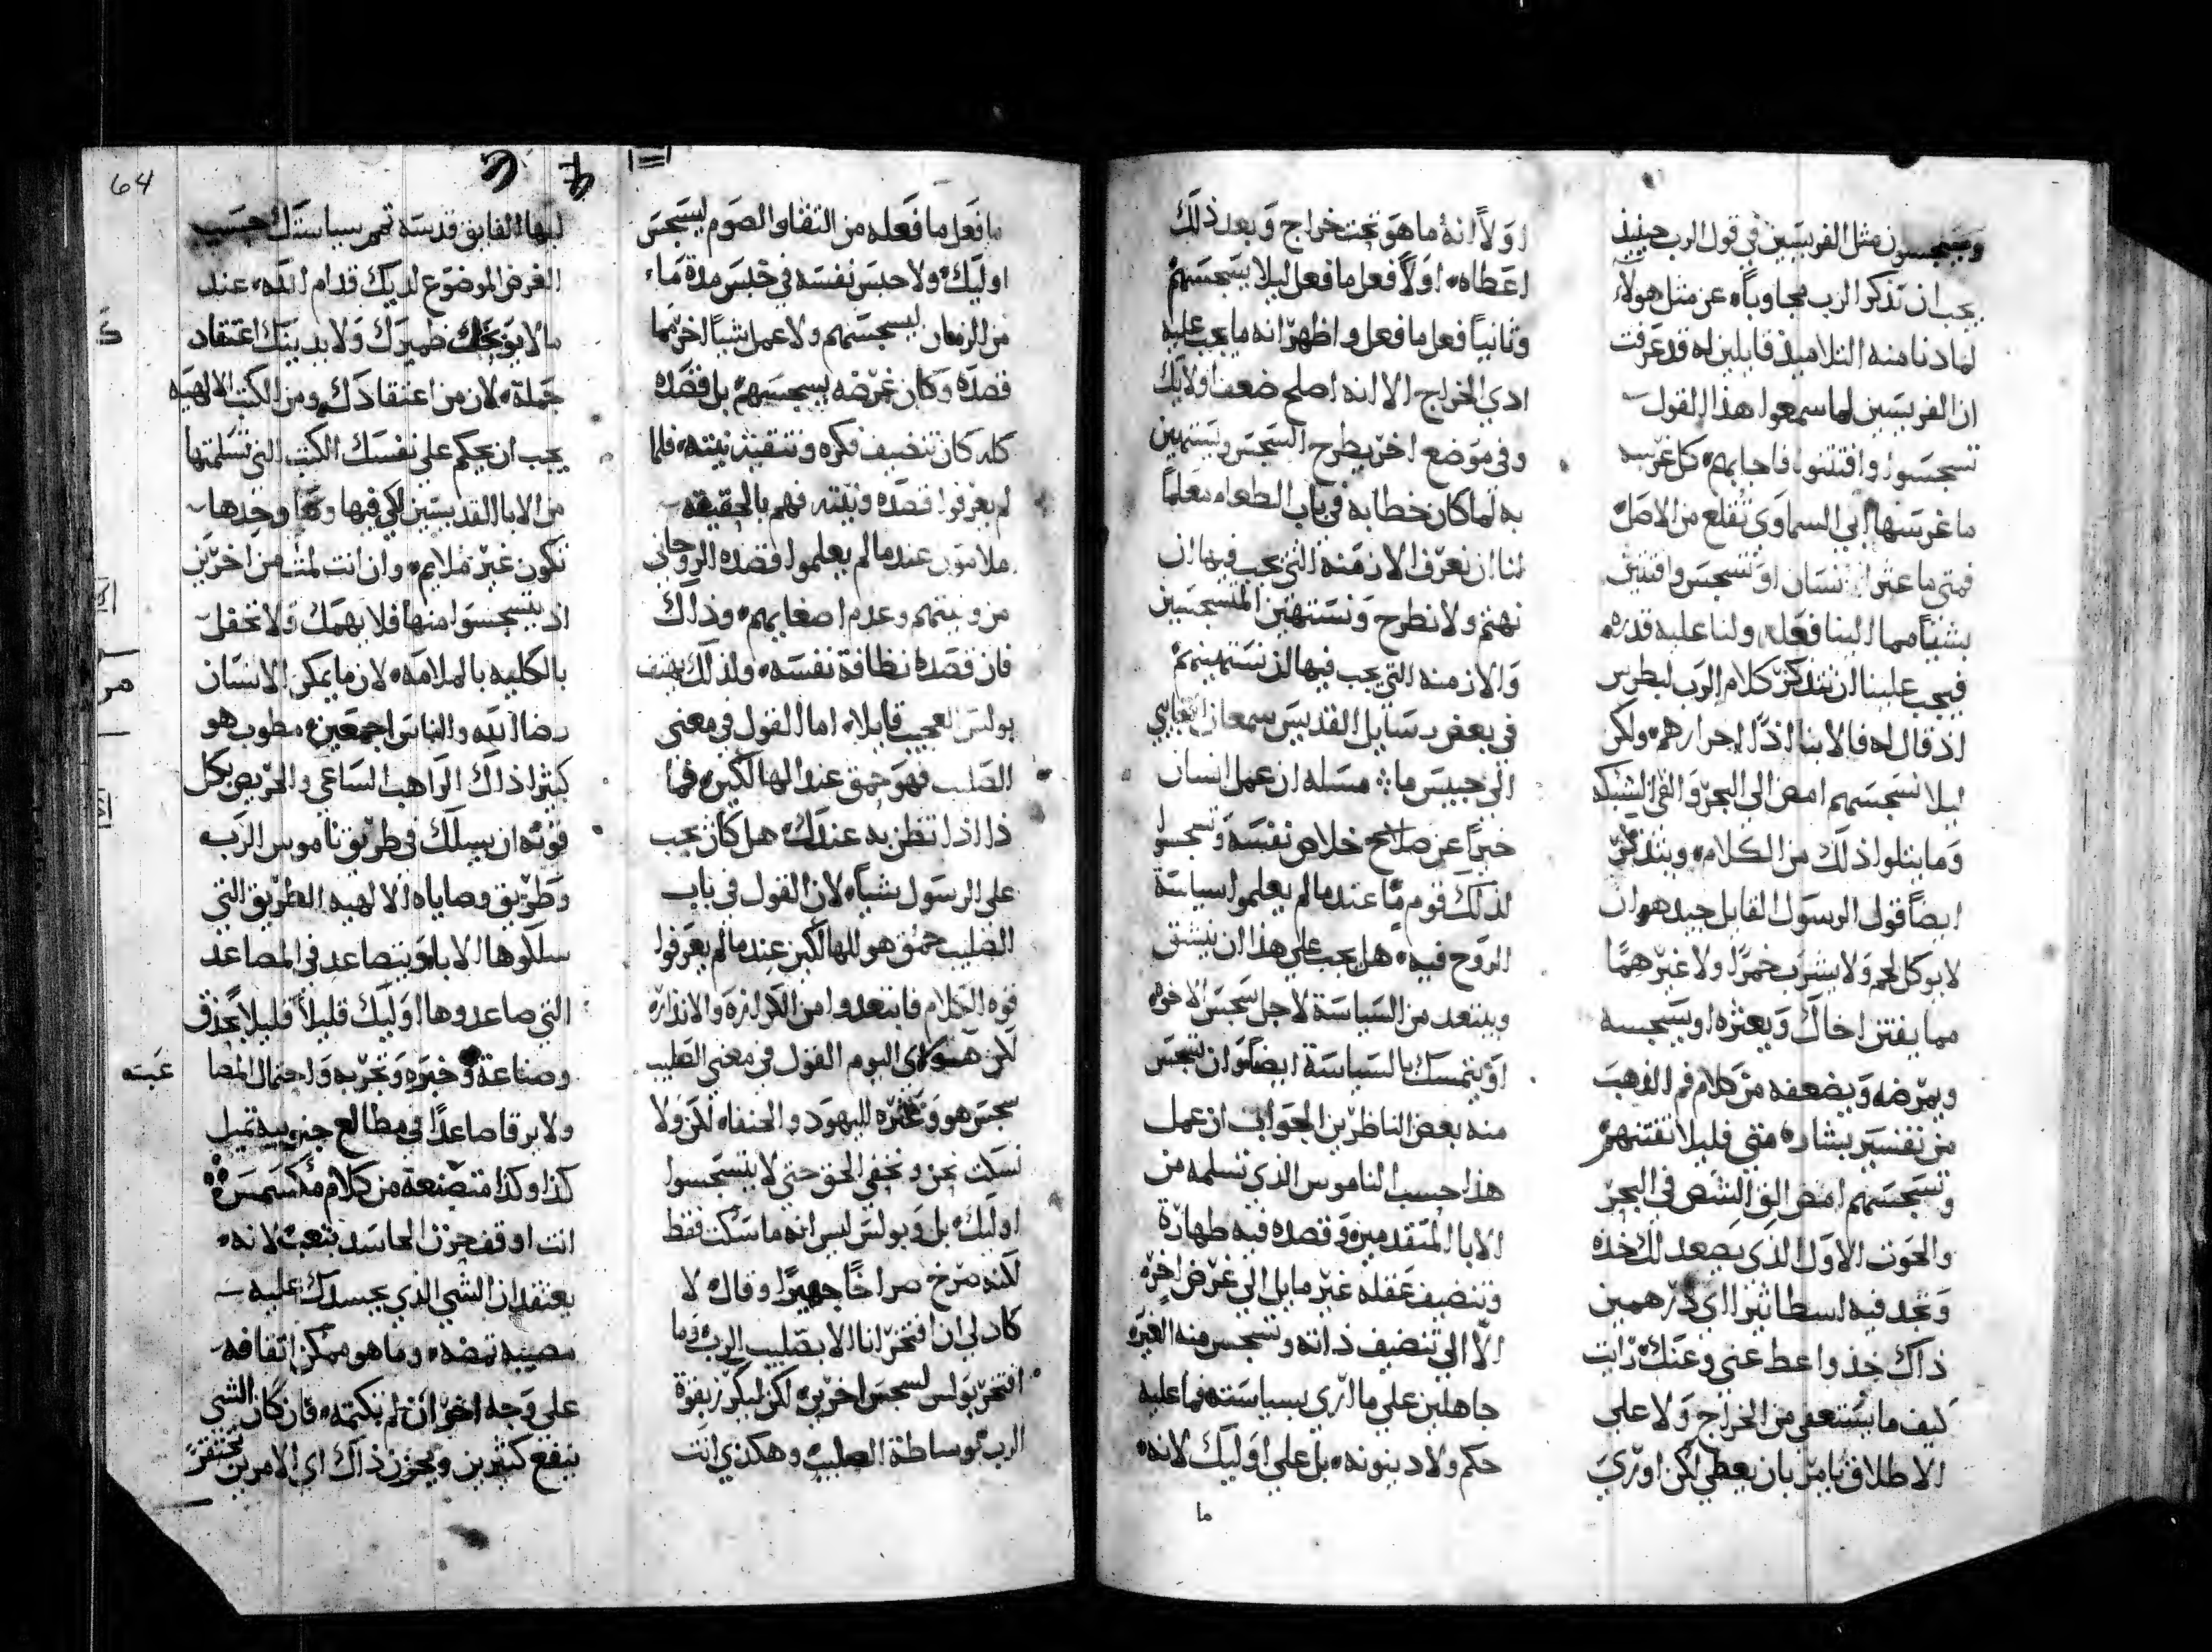 ويتسجسون مثل الفريسين في قول الرب حينيذ
يجب ان تذكر الرب مجاوباً عن مثل هولاء
لما دنا منه التلاميذ قايلين له قد عرفت
ان الفريسين لما سمعوا هذا القول
تسجسوا وافتتنوا فاجابهم كل غرسه
ما غرسها ابي السماوي تقلع من الاصل
فمتي ما عثر انسان او تسجس وافتتن
بشياً مما الينا فعله ولنا عليه قدره
فيجب علينا ان نتذكر كلام الرب لبطرس
اذ قال له فالابنا اذاً احرارهم ولكن
ليلا نسجسهم امض الى البحر والقي الشبكه
وما يتلوا ذلك من الكلام ويتذكر
ايضاً قول الرسول القايل جيد هو ان
لا يوكل لحم ولا يشرب خمراً ولا غيرهما
مما يفتن اخاك ويعثره او يسجسه
ويمرضه ويضعفه من كلام فم الذهب
من تفسير بشارة متى فليلا نفتنهم
ونسجسهم امض الق الشص في البحر
والحوت الاول الذي يصعد لك خذه
وتجد فيه اسطاثيرا اي درهمين
ذاك خذ واعط عني وعنك رايت
كيف ما يستعفي من الخراج ولا على
الاطلاق يامر بان يعطي لكن اوري
اولاً انه ما هو تحت خراج وبعد ذلك
اعطاه اولاً فعل ما فعل ليلا يسجسهم
وثانياً فعل ما فعل واظهر انه ما يجب عليه
ادي الخراج الا انه اصلح ضعف اولايك
وفي موضع اخر يطرح السجس ويستهين
به لما كان خطابه في باب الطعام معلماً
لنا ان نعرف الازمنه التي يجب فيها ان
نهتم ولا نطرح ونستهين المتسجسين
والازمنه التي يجب فيها ان نستهينهم
في بعض رسايل القديس سمعان العجايبي
الي حبيس ما مسله ان عمل انسان
خيراً عن صلاح خلاص نفسه وتسجسوا
لذلك قوم ما عند ما لم يعلموا سياسة
الروح فيه هل يجب علي هذا ان ينثني
ويبتعد من السياسة لاجل سجس الاخوه
او يتمسك بالسياسة ايضاً وان تسجس
منه بعض الناظرين الجواب ان عمل
هذا حسب الناموس الذي تسلمه من
الابا المتقدمين وقصده فيه طهارة
وتنضيف عقله غير مايل الي غرض اخر
الا الي تنضيف ذاته وتسجس منه الغير
جاهلين علي ما اري بسياسته فما عليه
حكم ولا دينونه بل علي اوليك لانه
ما
ما فعل ما فعله من التقا والصوم ليسجس
اوليك ولا حبس نفسه في حبس مدة ماء
من الزمان ليسجسهم ولا عمل شياً اخر مما
قصده وكان غرضه يسجسهم بل قصده
كله كان تنضيف فكره وتنقية نيته فلما
لم يعرفوا قصده ونيته فهم بالحقيقه
ملامون عند ما لم يعلموا قصده الروحاني
من ونيتهم وعدم اصغايهم وذلك
فان قصده نظافة نفسه ولذلك يهتف
بولس العجيب قايلا اما القول في معني
الصليب فهو حمق عند الهالكين فما
ذا اذا تظن به عندك هل كان يجب
علي الرسول شياً لان القول في باب
الصليب حمق هو للهالكين عند ما لم يعرفوا
قوه الكلام فابتعدوا من الكرازه والانذاره
لكن هوذي اليوم القول في معني الصليب
سجس هو وعثره لليهود والحنفاء لكن ولا
نسكت نحن ونخفي الحق حتي لا يتسجسوا
اوليك بل وبولس ليس انه ما سكت فقط
لكنه صرخ صراخاً جهيراً وقال لا
كان لي ان افتخر انا الا بصليب الرب وما
افتخر بولس ليسجس اخرين لكن ليكرز بقوة
الرب بوساطة الصليب وهكذي انت
64
ايها الفايق قدسه تمم سياستك حسب
الغرض الموضوع لديك قدام الله عند
ما لا يوبخك ظميرك ولا يدينك اعتقاد
جملة لان من اعتقادك ومن الكتب الالهيه
يجب ان يحكم علي نفسك الكتب التي تسلمتها
من الابا القديسين لكي فيها وحدها
تكون غير ملايم وان انت لمت من اخرين
اذ يتسجسوا منها فلا يهمك ولا تحفل
بالكليه بالملامه لان ما يمكن الانسان
رضا الله والناس اجمعين مطوب هو
كثيرا ذاك الراهب الساعي والحريص بكل
قوته ان يسلك في طريق ناموس الرب
وطريق وصاياه الالهيه الطريق التي
سلكوها الابا ويتصاعد في المصاعد
التي صاعدوها اوليك قليلاً قليلا بحذق
وصناعة وخبره وتجربه واحتمال المصا
عبته
ولا يرقا صاعداً في مطالع جنونيه تميل
كذا وكذا متصنعة من كلام مكسيمس
انت اوقف حزن الحاسد بتعب لانه
يعتقد ان الشي الذي يحسدك عليه
مصيبه تمضه وما هو ممكن اتفاقه
علي وجه اخر ان لم تكتمه فان كان الشي
ينفع كثيرين ويحزن ذاك اي الامرين تحتقر